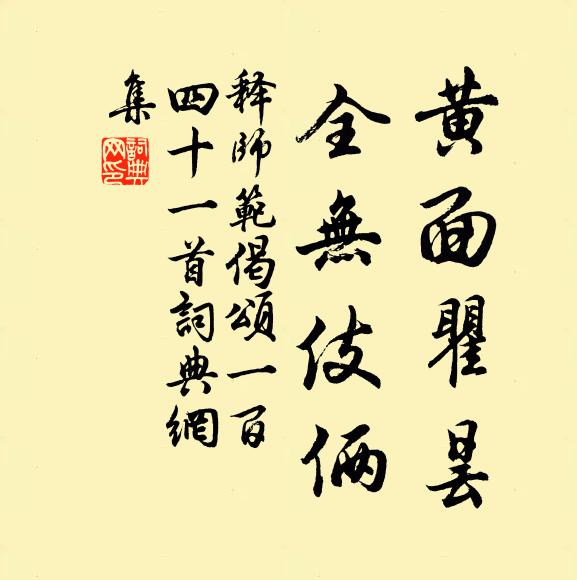 黄面瞿昙
全無伎倆
释師範偈頌一百
四十一首詞典網
集
詞典網印